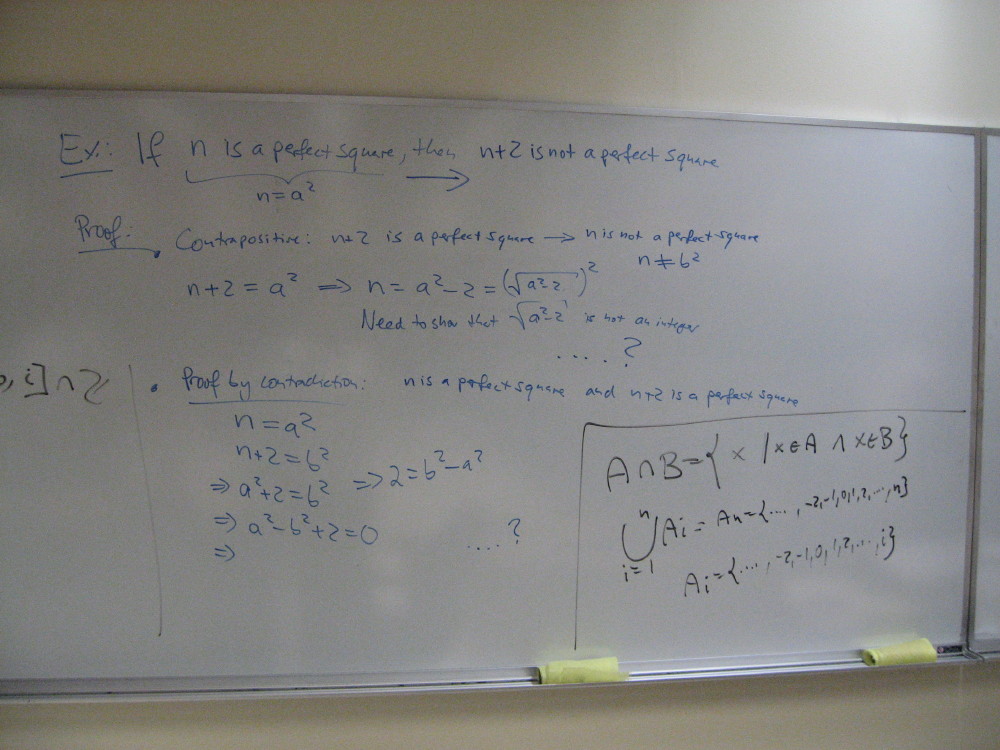 Ex.: If n is a perfect square, then n+2 is not a perfect square
n=a²
Proof:
Contrapositive: n+2 is a perfect square → n is not a perfect square
n≠b²
n+2=a² ⇒ n=a²-2=(√a²-2)²
Need to show that √a²-2 is not an integer
....?
, i]∩ℤ
• Proof by contradiction: n is a perfect square and n+2 is a perfect square
n=a²
n+2=b²
⇒ a²+2=b² ⇒ 2=b²-a²
⇒ a²-b²+2=0
....?
⇒
A∩B={x | x∈A ∧ x∈B}
n
⋃Ai = An={..., -2,-1,0,1,2,...,n}
i=1
Ai={..., -2,-1,0,1,2,...,i}